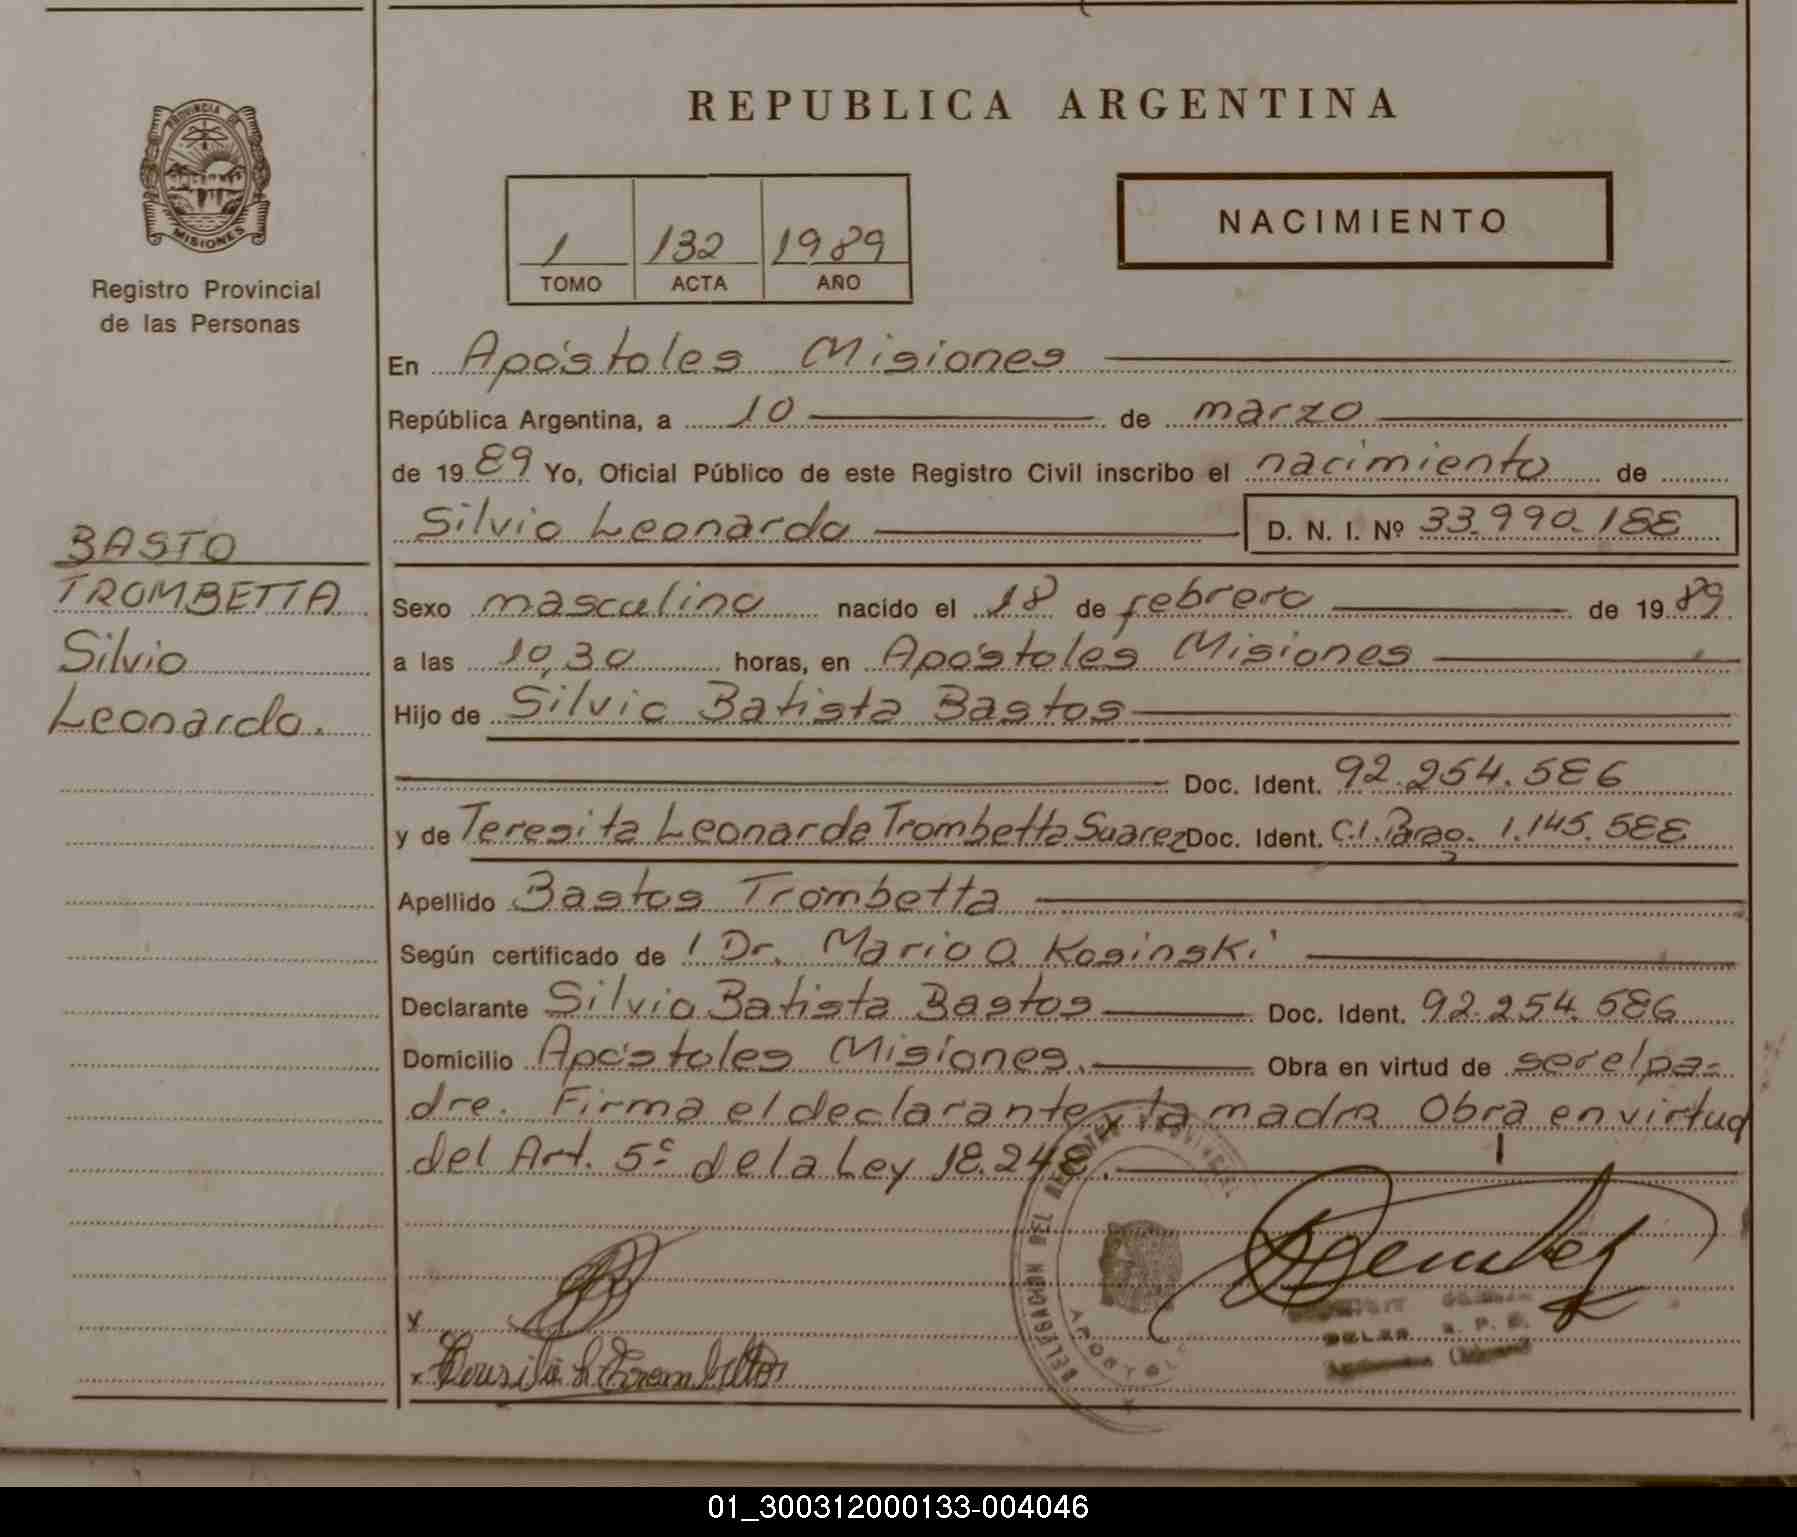 PROVINCIA DE
MISIONES
Registro Provincial
de las Personas
BASTO
TROMBETTA
Silvio
Leonardo.
REPUBLICA ARGENTINA
1 132 1989
TOMO ACTA AÑO
NACIMIENTO
En Apóstoles Misiones
República Argentina, a 10 de marzo
de 1989 Yo, Oficial Público de este Registro Civil inscribo el nacimiento de
Silvio Leonardo D. N. I. Nº 33.990.188
Sexo masculino nacido el 18 de febrero de 1989
a las 10,30 horas, en Apóstoles Misiones
Hijo de Silvio Batista Bastos
Doc. Ident. 92.254.586
y de Teresita Leonarda Trombetta Suarez Doc. Ident. C.I. Parag. 1.145.588
Apellido Bastos Trombetta
Según certificado de l Dr. Mario O. Kosinski
Declarante Silvio Batista Bastos Doc. Ident. 92.254.586
Domicilio Apóstoles Misiones. Obra en virtud de ser el pa-
dre. Firma el declarante y la madre Obra en virtud
del Art. 5º de la Ley 18.248.
DELEGACION DEL REGISTRO PROVINCIAL
APOSTOLES
x
x
01_300312000133-004046